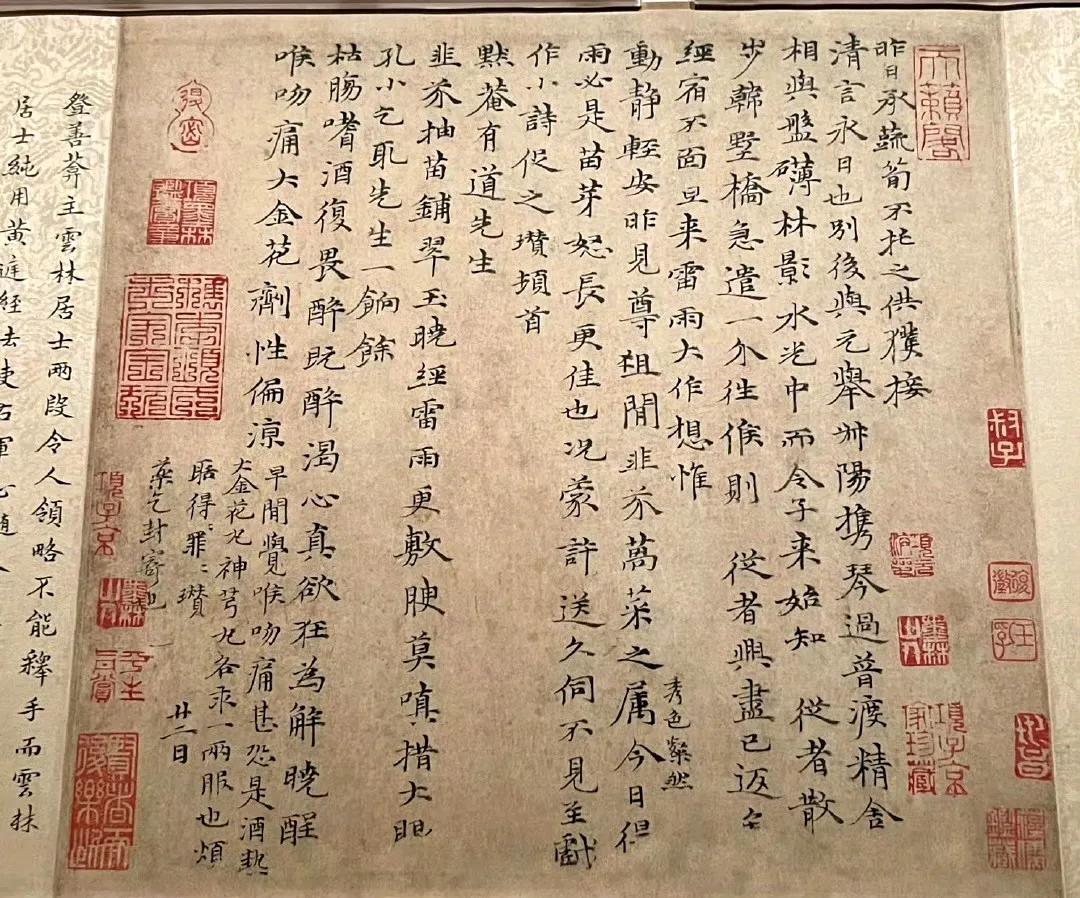 天籟閣
昨日承蔬筍不托之供獲接
清言永日也別後與元舉叔陽攜琴過普渡精舍
相與盤礴林影水光中而令子来始知 從者散
步韓墅橋急遣一介往候則 從者興盡已返舍
經宿不面旦来雷雨大作想惟
動静輕安昨見尊俎間韭芥萵菜之属秀色粲然今日得
雨必是苗芽怒長更佳也况蒙許送久伺不見至戲
作小詩促之瓚頓首
默菴有道先生
韭芥抽苗鋪翠玉曉經雷雨更敷腴莫嗔措大眼
孔小乞取先生一餉餘
枯腸嗜酒復畏醉既醉渴心真欲狂為解曉酲
喉吻痛大金花劑性偏涼
早間覺喉吻痛甚恐是酒熱
大金花丸神芎丸各求一兩服也煩
聒得〻罪〻瓚
藥乞封寄也
廿二日
項子京家珍藏
項子京
登善葊主雲林居士兩段令人領略不能釋手而雲林
居士純用黄庭經法